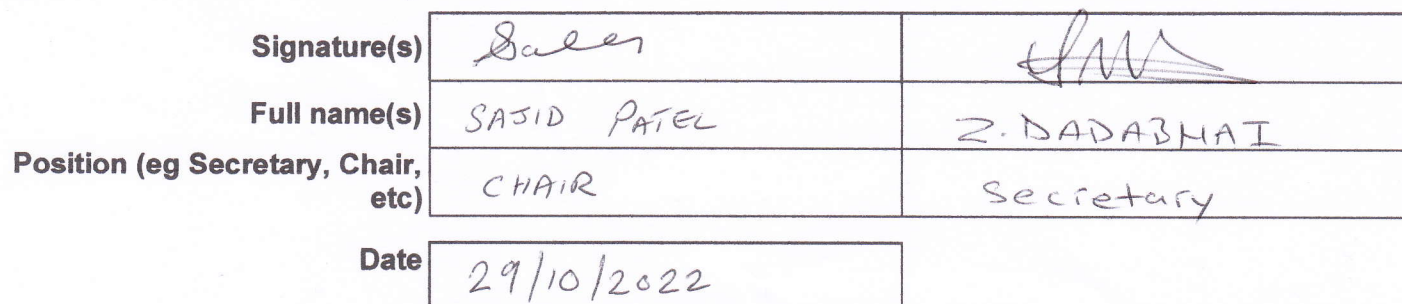 Signature(s)
Full name(s) SAJID PATEL Z. DADABHAI
Position (eg Secretary, Chair,
etc) CHAIR Secretary
Date 29/10/2022